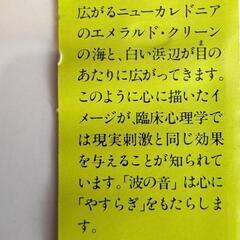 広がるニューカレドニア
のエメラルド・クリーン
の海と、白い浜辺が目ま の
あたりに広がってきます。
このように心に描いたイ
メージが、臨床心理学で
は現実刺激と同じ効果
を与えることが知られて
います。「波の音」は心に
「やすらぎ」をもたらしま
す。